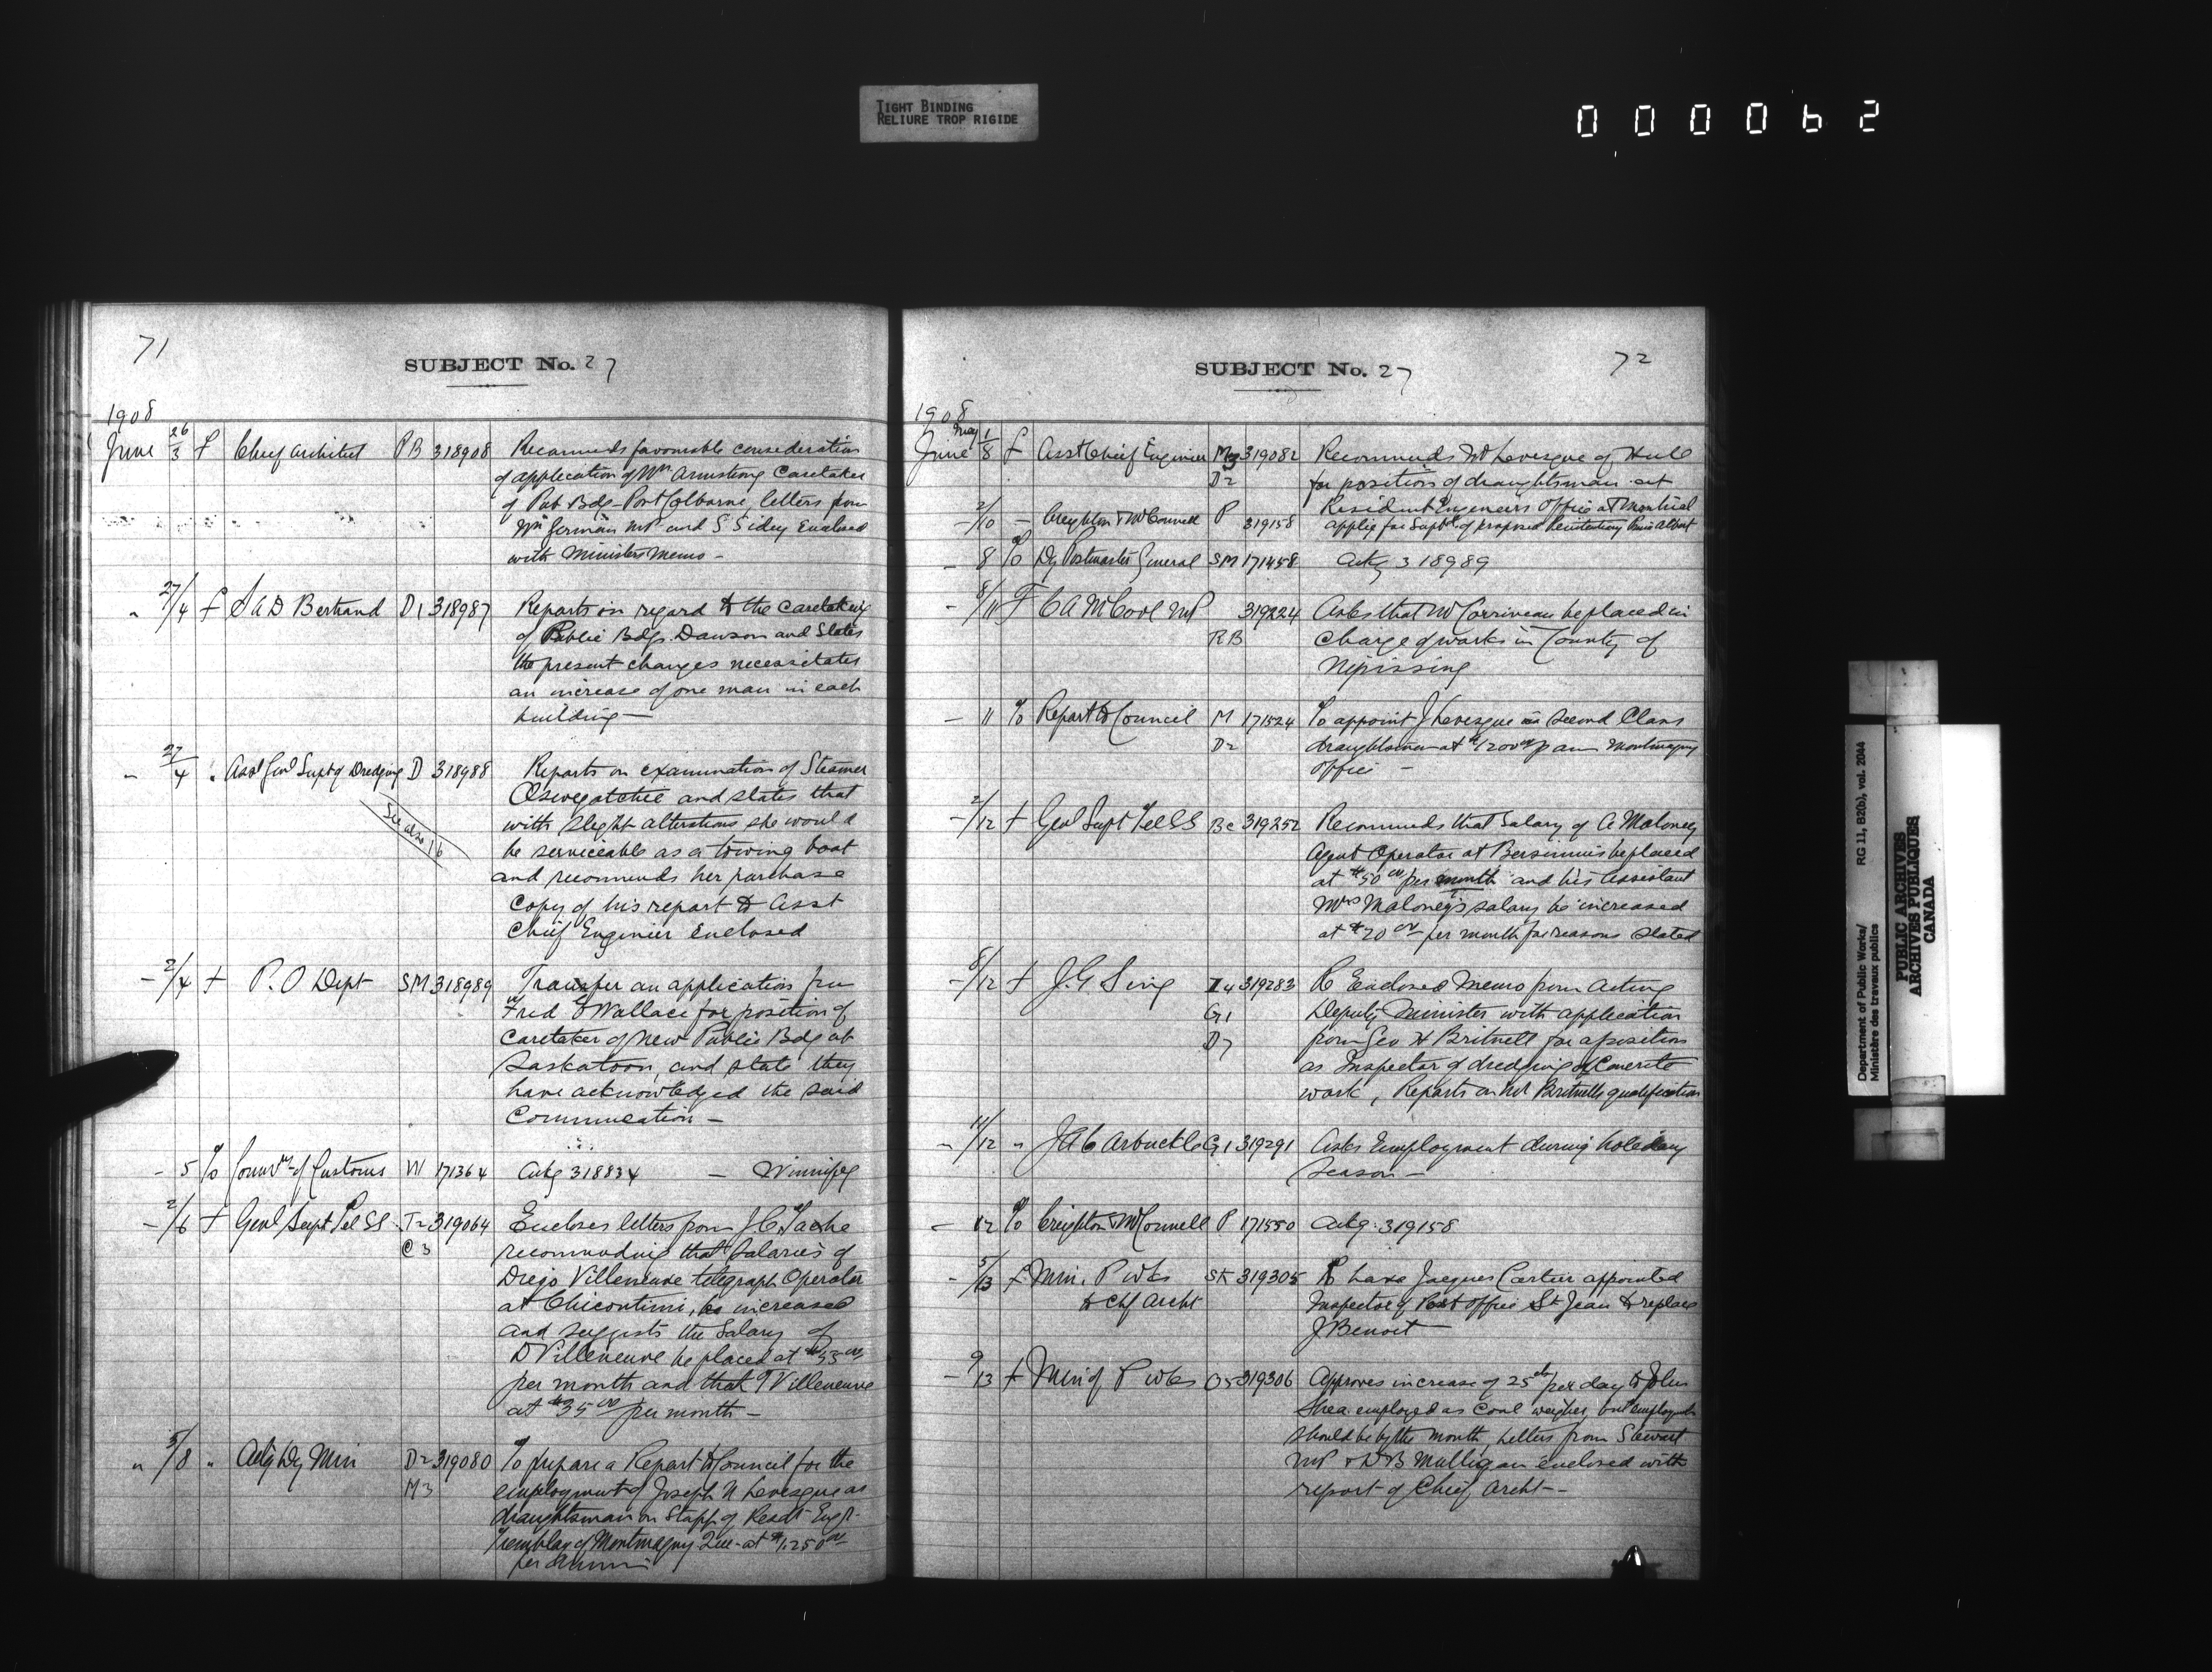 TIGHT BINDING
RELIURE TROP RIGIDE
000062
71
SUBJECT No. 27
1908
June 26/3 f Chief Architect PB 318908 Recommends favourable consideration
of application of Wm Armstrong Caretaker
of Pub Bdg - Port Colborne, letters from
Wm German MP and S Sidey Enclosed
with Ministers Memo -
" 27/4 f S A D Bertrand D1 318987 Reports in regard to the caretaking
of Public Bdgs. Dawson and States
the present changes necessitates
an increase of one man in each
building -
" 27/4 " Asst Genl Supt of Dredging D 318988 Reports on examination of Steamer
See also 16
Oswegatchie and states that
with slight alterations she would
be serviceable as a towing boat
and recommends her purchase
Copy of his report to Asst
Chief Engineer Enclosed
- 2/4 f P. O Dept SM 318989 Transfer an application from
Fred E Wallace for position of
Caretaker of New Public Bdg at
Saskatoon, and state they
have acknowledged the said
Communication -
- 5 % Commr of Customs W 171364 Ackg 318834 - Winnipeg
- 2/6 f Genl Supt Tel SS T2 319064 Encloses letters from J C Tache
C3 recommending that salaries of
Diego Villeneuve telegraph Operator
at Chicoutimi, be increased
and suggests the Salary of
D Villeneuve be placed at $55 00
per month and that T Villeneuve
at $35 00 per month -
" 5/8 " Actg Dy Min D2 319080 To prepare a Report to Council for the
M3 employment of Joseph N Levesque as
draughtsman on Staff of Resdt Engr.
Tremblay of Montmagny Que - at $1,250 00
per Annum
SUBJECT No. 27
72
1908
May
June 1/8 f Asst Chief Engineer M3 319082 Recommends Mr Levesque of Hull
D2 for position of draughtsman at
Resident Engineers Office at Montreal
- 2/10 - Creighton & McConnell P 319158 applies for Supt of proposed Penitentiary Prince Albert
- 8 % Dy Postmaster General SM 171458 Ackg 318989
- 8/11 F C A McCool MP 319224 Asks that Mr Corriveau be placed in
RB charge of works in County of
Nipissing
- 11 % Report to Council M 171524 To appoint J Levesque as Second Class
D2 draughtsman at $1200 00 p ann Montmagny
Office -
- 2/12 f Genl Supt Tel SS Be 319252 Recommends that Salary of A Maloney
Agent Operator at Bersimis be placed
at $50 00 per month and his Assistant
Mrs Maloney's salary be increased
at $20 00 per month for reasons stated
- 8/12 f J. G. Sing 319283 R Enclosed Memo from Acting
G1 Deputy Minister with application
D7 from Geo H Britnell for a position
as Inspector of dredging of Concrete
work, Reports on Mr Britnells qualification
- 11/12 " J A C Arbuckle G1 319291 Asks Employment during holiday
Season -
- 12 % Creighton & McConnell P 171550 Ackg. 319158
- 5/13 f Min. P Wks SK 319305 To have Jacques Cartier appointed
& Chf Archt Inspector of Post Office St Jean to replace
J Benoit -
- 9/13 f Min of P Wks 319306 Approves increase of 25 cts per day to John
Shea employed as Coal weigher, but employment
should be by the month, Letters from Stewart
MP & D B Mulligan enclosed with
report of Chief Archt -
Department of Public Works/ RG 11, B2(b), vol. 2044
Ministère des travaux publics
PUBLIC ARCHIVES
ARCHIVES PUBLIQUES
CANADA